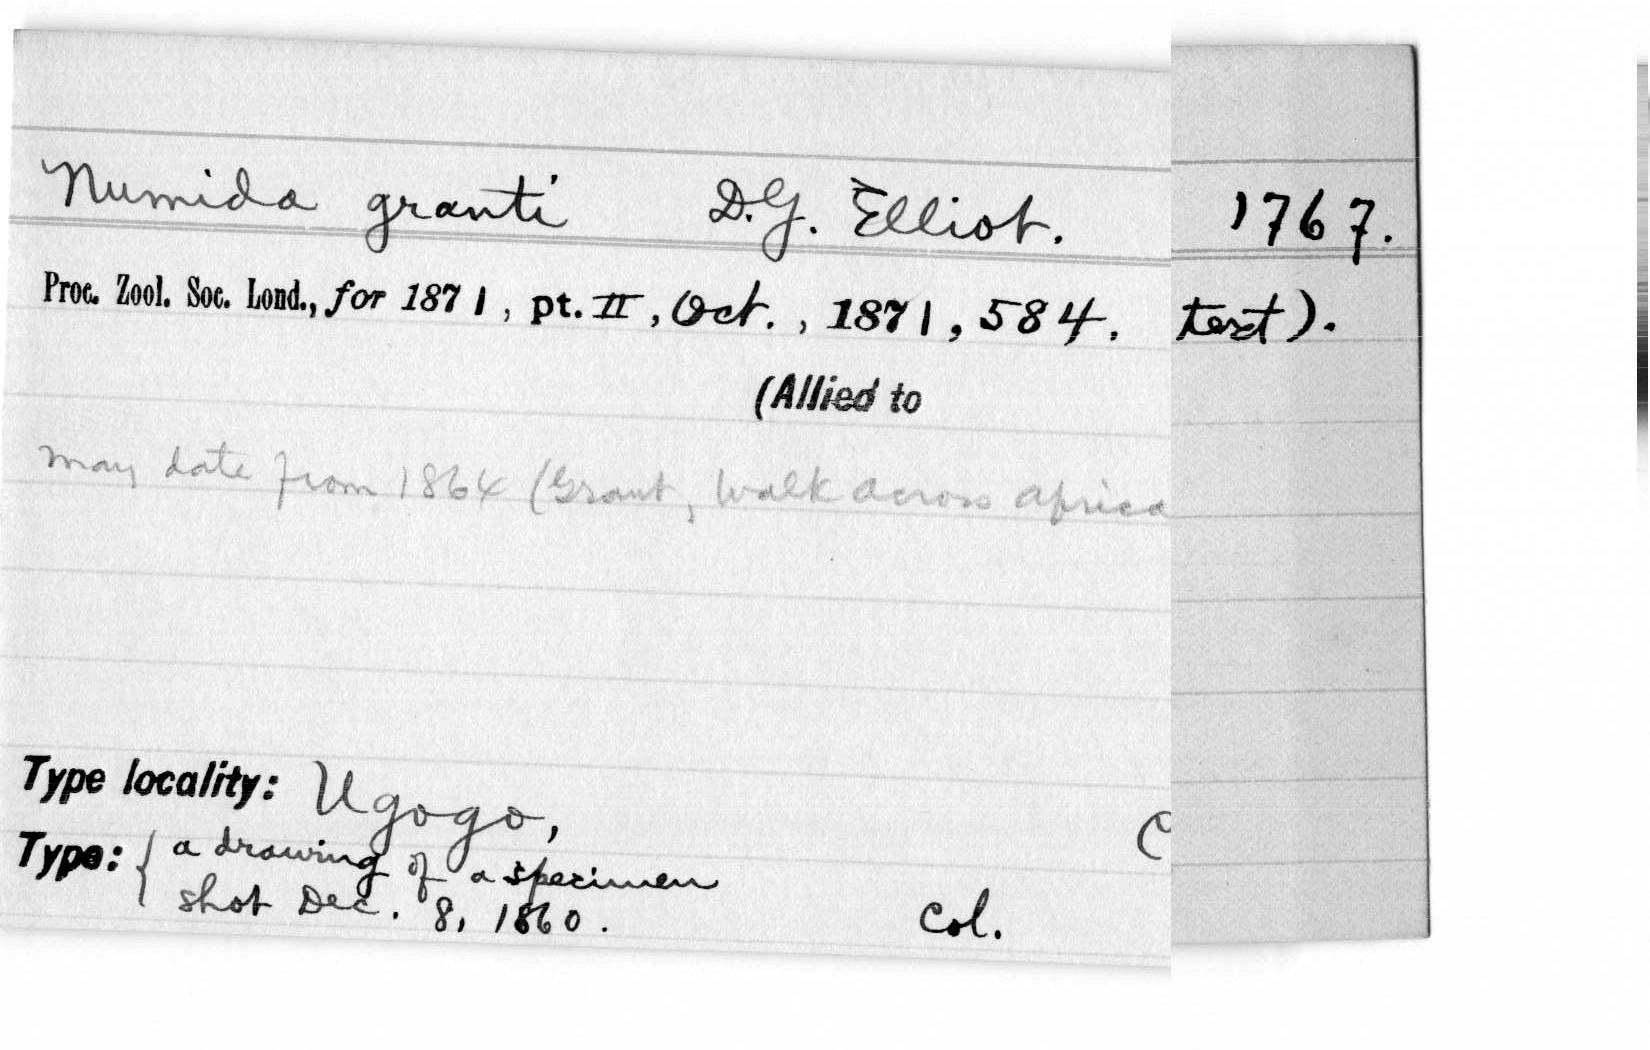 Numida granti D.G. Elliot. 1767.
Proc. Zool. Soc. Lond., for 1871, pt. II, Oct., 1871, 584. text).
(Allied to
may date from 1864 (Grant, Walk across Africa
Type locality: Ugogo, C
Type: { a drawing of a specimen
shot Dec. 8, 1860. Col.